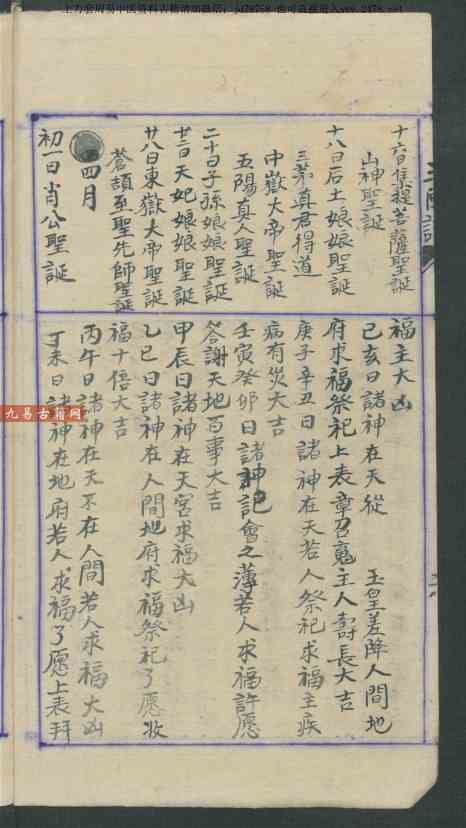 十六日準提菩薩聖誕
山神聖誕
十八日后土娘娘聖誕
三茅真君得道
中嶽大帝聖誕
五陽真人聖誕
二十日子孫娘娘聖誕
廿三日天妃娘娘聖誕
廿八日東嶽大帝聖誕
蒼頡至聖先師聖誕
四月
初一日肖公聖誕
福主大凶
己亥日諸神在天從 玉皇差降人間地
府求福祭祀上表章召魂主人壽長大吉
庚子辛丑日諸神在天若人祭祀求福主疾
病有災大吉
壬寅癸卯日諸神記會之薄若人求福許愿
答謝天地百事大吉
甲辰日諸神在天宮求福大凶
乙巳日諸神在人間地府求福祭祀了愿收
福十倍大吉
丙午日諸神在天不在人間若人求福大凶
丁未日諸神在地府若人求福了愿上表拜
九易古籍网